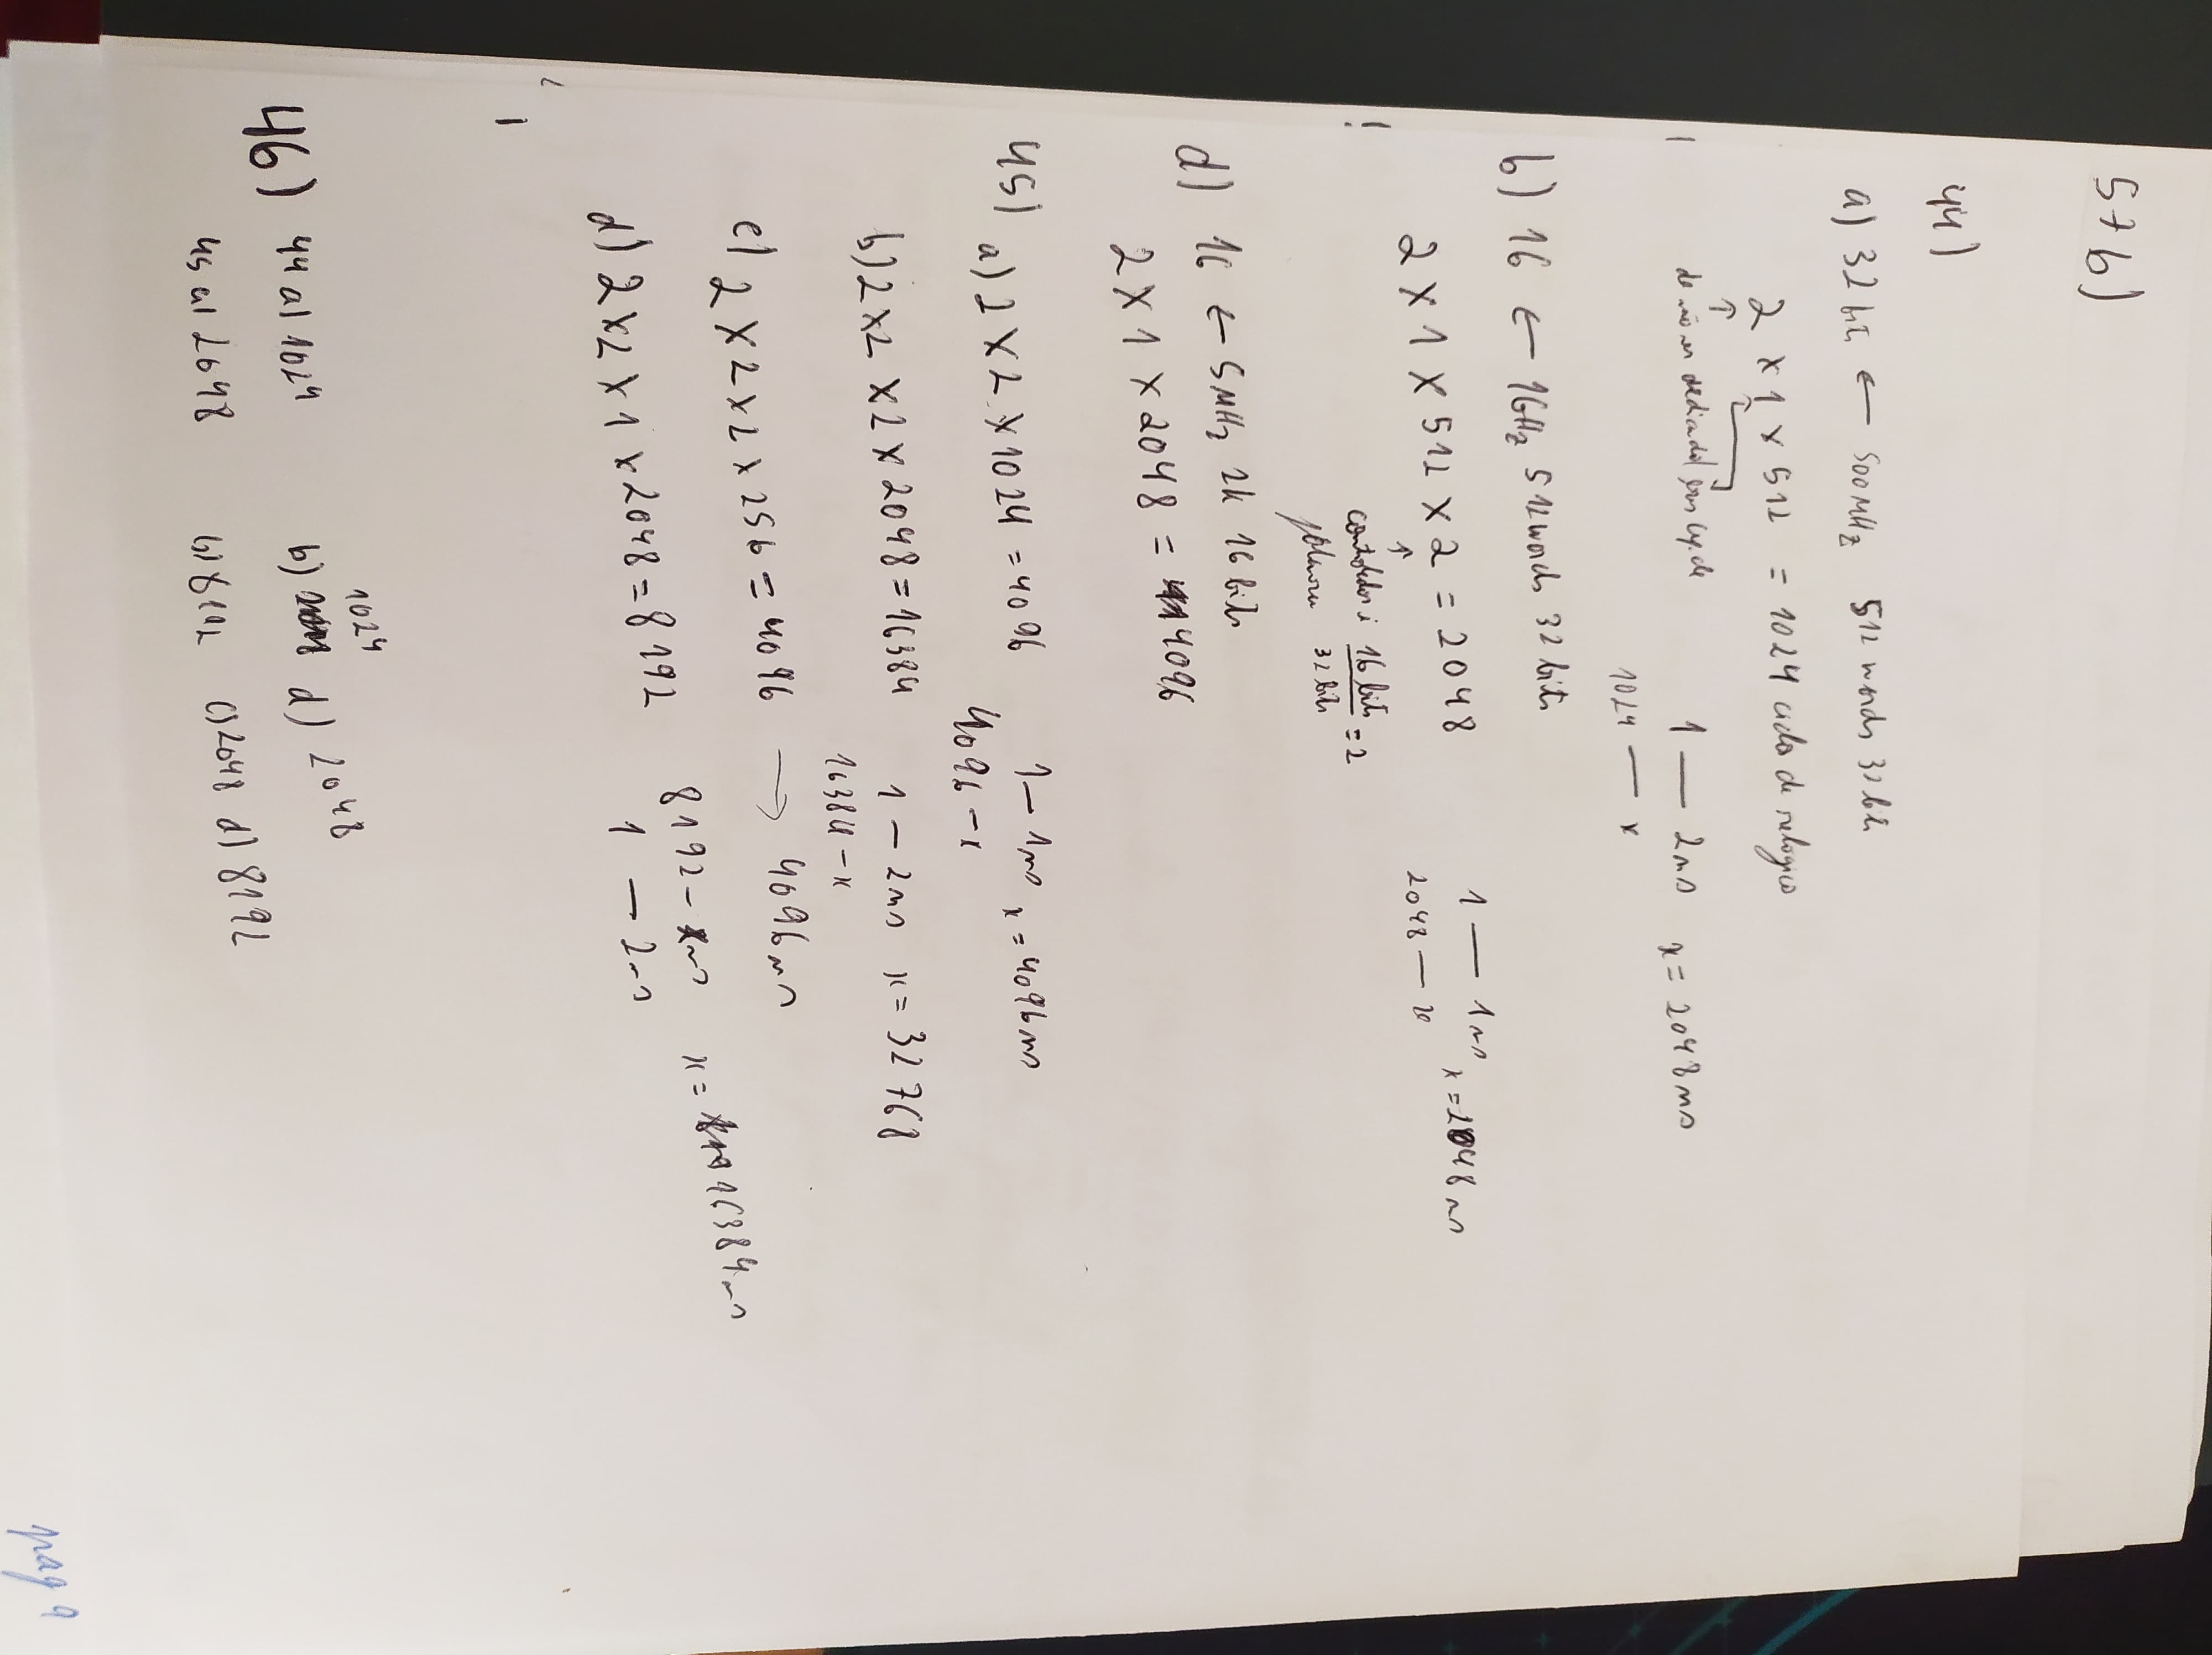 57b)
44)
a) 32 bits ← 500MHz 512 words 32 bits
2 × 1 × 512 = 1024 ciclos de relogico
↑
de não ser dedicado bus cycle
1 — 2ns x = 2048 ns
1024 — x
b) 16 ← 1GHz 512 words 32 bits
2 × 1 × 512 × 2 = 2048
1 — 1ns x = 2048 ns
2048 — x
↑
16 bits = 2
palavra 32 bits
d) 16 ← 5MHz 2k 16 bits
2 × 1 × 2048 = 4096
45) a) 2 × 2 × 1024 = 4096 1 — 1ns x = 4096 ns
4096 — x
b) 2 × 2 × 2 × 2048 = 16384 1 — 2ns x = 32768
16384 — x
c) 2 × 2 × 2 × 256 = 4096 → 4096 ns
d) 2 × 2 × 1 × 2048 = 8192 8192 — xns x = 16384 ns
1 — 2ns
1024
46) 44 a) 1024 b) d) 2048
45 a) 2048 b) 8192 c) 2048 d) 8192
pag 9